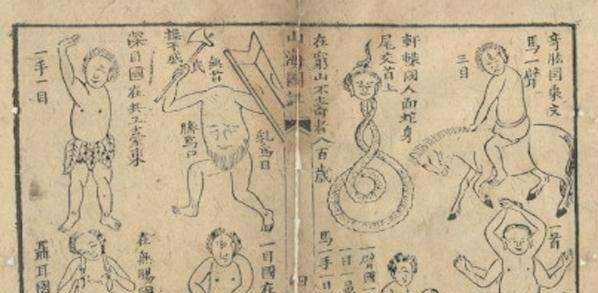 奇肱國乘文
馬一臂
三目
軒轅國人面蛇身
尾交首上
在窮山不壽者八百歲
山海圖
乳為目
臍為口
無首
深目國在共工臺東
一手一目
一首
一臂國
一目一
馬一手
四
一目國在
在無腸國
聶耳國